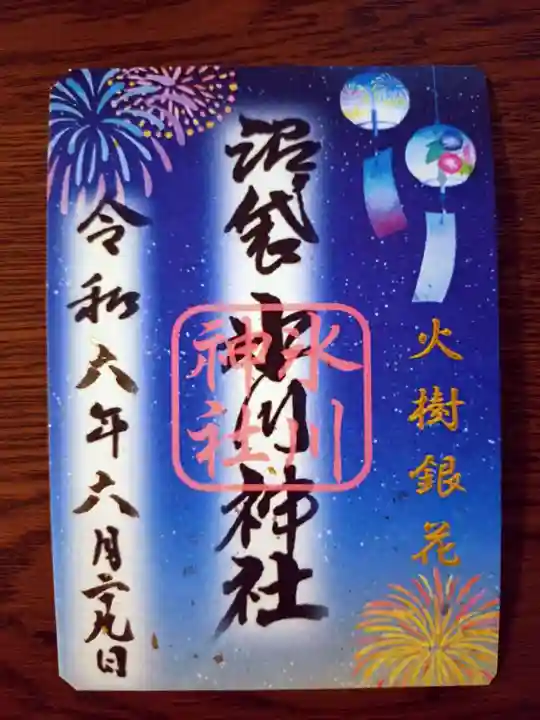 火樹銀花
沼袋氷川神社
氷川
神社
令和六年六月二九日